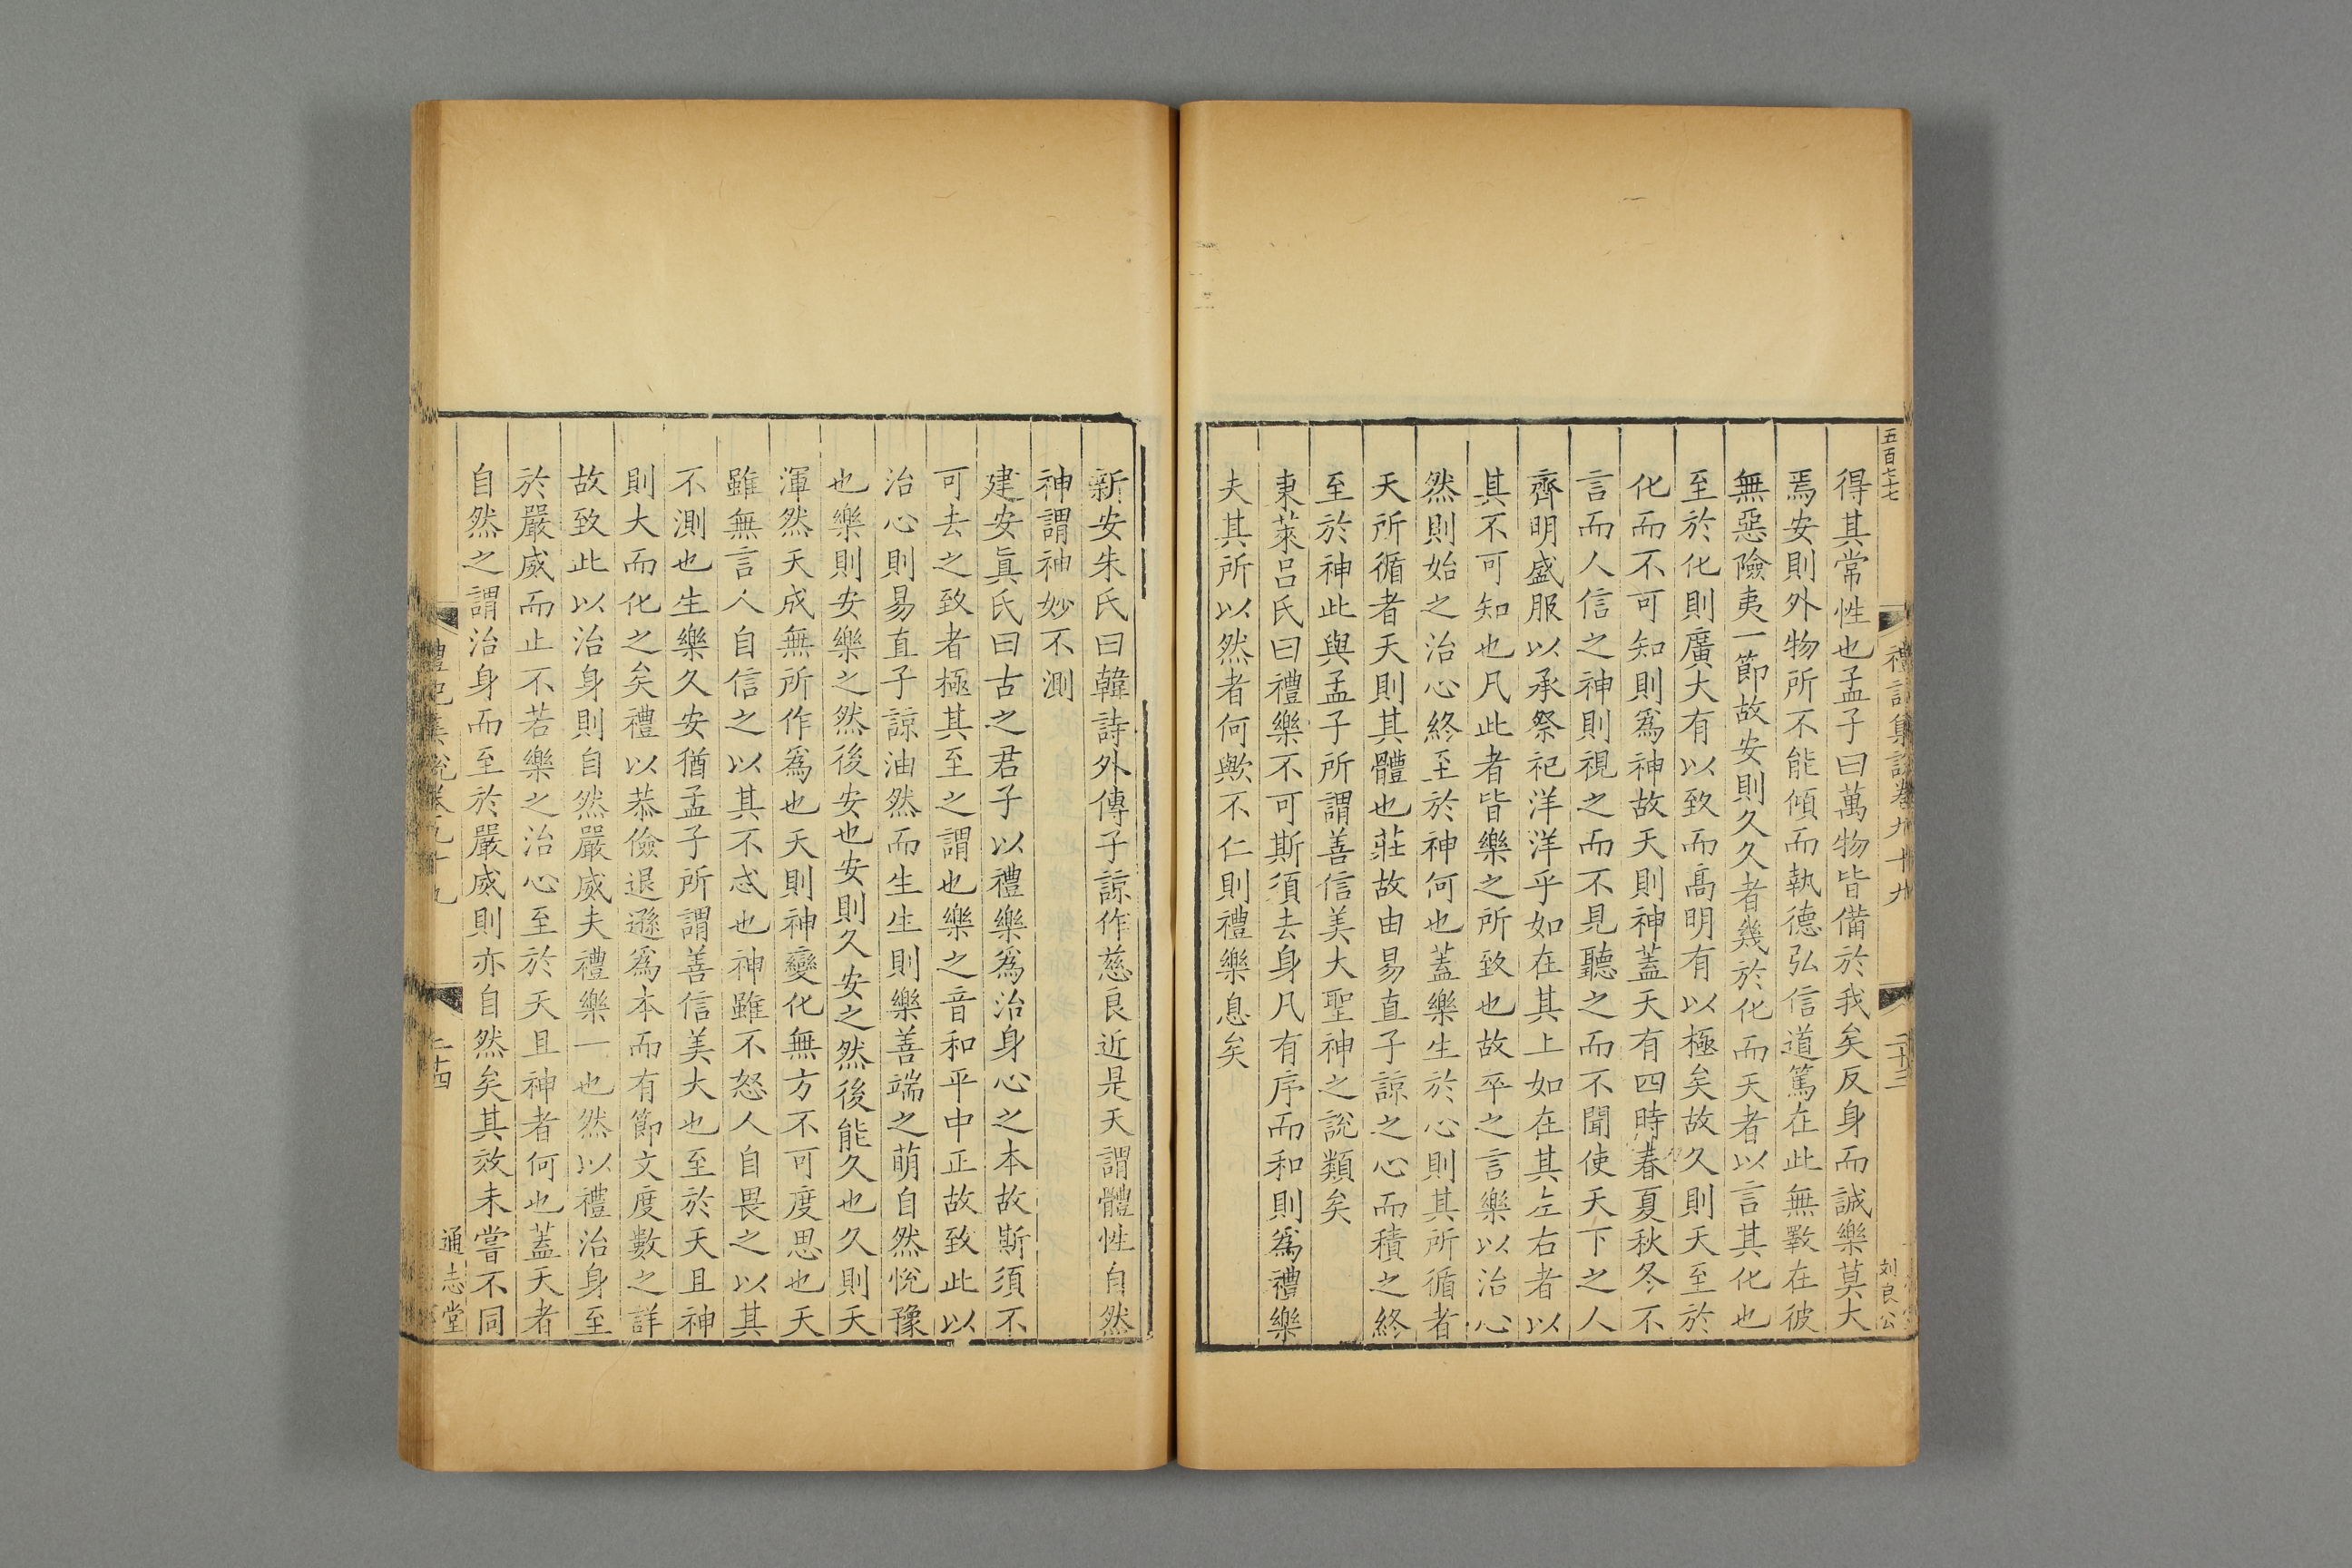 五百七七
禮記集說卷九十九
二十三
刘良公
得其常性也孟子曰萬物皆備於我矣反身而誠樂莫大
焉安則外物所不能傾而執德弘信道篤在此無斁在彼
無惡險夷一節故安則久久者幾於化而天者以言其化也
至於化則廣大有以致而髙明有以極矣故久則天至於
化而不可知則爲神故天則神蓋天有四時春夏秋冬不
言而人信之神則視之而不見聽之而不聞使天下之人
齊明盛服以承祭祀洋洋乎如在其上如在其左右者以
其不可知也凡此者皆樂之所致也故卒之言樂以治心
然則始之治心終至於神何也蓋樂生於心則其所循者
天所循者天則其體也莊故由易直子諒之心而積之終
至於神此與孟子所謂善信美大聖神之說類矣
東萊呂氏曰禮樂不可斯須去身凡有序而和則爲禮樂
夫其所以然者何歟不仁則禮樂息矣
新安朱氏曰韓詩外傳子諒作慈良近是天謂體性自然
神謂神妙不測
建安眞氏曰古之君子以禮樂爲治身心之本故斯須不
可去之致者極其至之謂也樂之音和平中正故致此以
治心則易直子諒油然而生生則樂善端之萌自然悅豫
也樂則安樂之然後安也安則久安之然後能久也久則天
渾然天成無所作爲也天則神變化無方不可度思也天
雖無言人自信之以其不忒也神雖不怒人自畏之以其
不測也生樂久安猶孟子所謂善信美大也至於天且神
則大而化之矣禮以恭儉退遜爲本而有節文度數之詳
故致此以治身則自然嚴威夫禮樂一也然以禮治身至
於嚴威而止不若樂之治心至於天且神者何也蓋天者
自然之謂治身而至於嚴威則亦自然矣其效未嘗不同
禮記集說卷九十九
二十四
通志堂